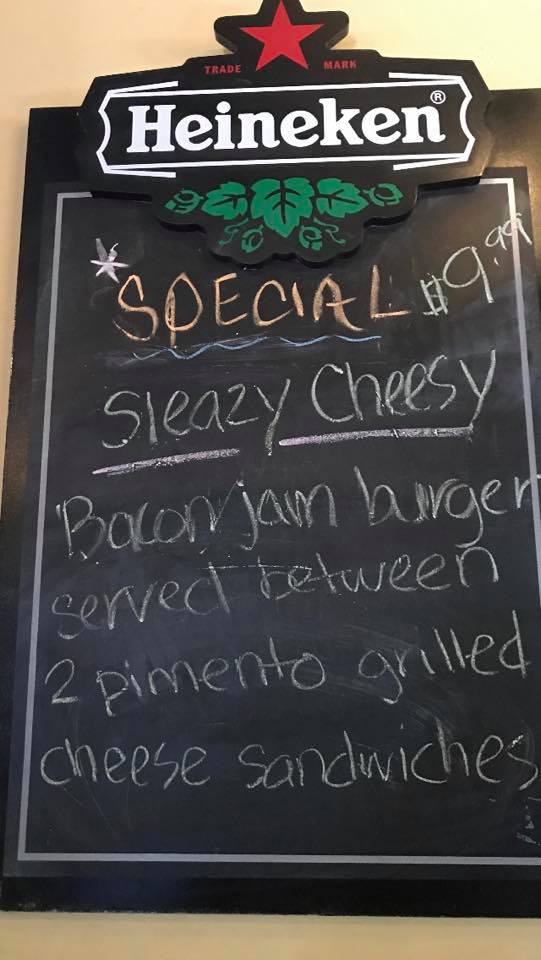 TRADE MARK
Heineken®
*SPECIAL $9.99
Sleazy Cheesy
Bacon/jam burger
served between
2 pimento grilled
cheese sandwiches